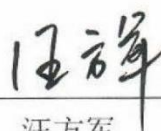 汪方军
汪方军